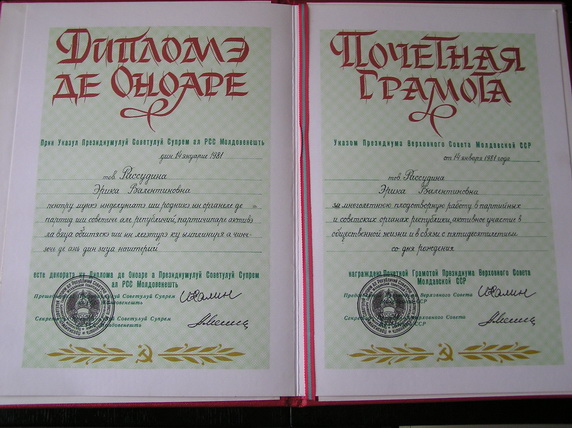 Дипломэ
де Оноаре
Прин Указул Президиумулуй Советулуй Супрем ал РСС Молдовенешть
дин 14 януарие 1981
тов. Рассудина
Эрика Валентиновна
пентру мункэ ынделунгатэ ши родникэ ын органеле де
партид ши советиче але републичий, партичипаре активэ
ла вяца обштяскэ ши ын легэтурэ ку ымплиниря а чинч-
зечь де ань дин зиуа наштерий
есте декоратэ ку Дипломa де Оноаре а Президиумулуй Советулуй Супрем
ал РСС Молдовенешть
Советулуй Супрем
Советулуй Супрем
Почетная
Грамота
Указом Президиума Верховного Совета Молдавской ССР
от 14 января 1981 года
тов. Рассудина
Эрика Валентиновна
за многолетнюю плодотворную работу в партийных
и советских органах республики, активное участие в
общественной жизни и в связи с пятидесятилетием
со дня рождения
награждена Почетной Грамотой Президиума Верховного Совета
Молдавской ССР
Верховного Совета
Верховного Совета
ССР